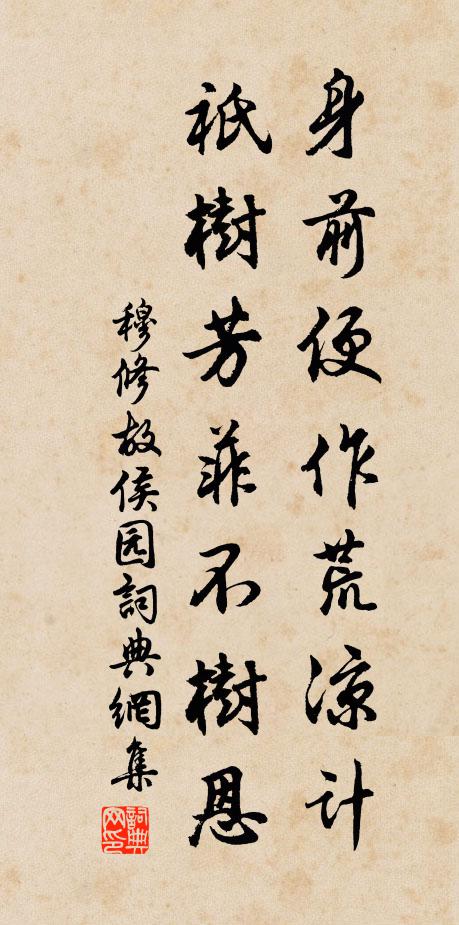 身前便作荒涼计
祇樹芳菲不樹恩
穆修故侯园詞典網集
詞典网印